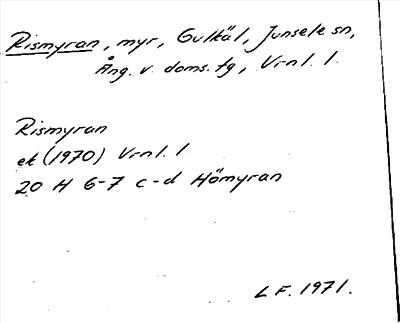 Rismyran, myr, Gulkäl, Junsele sn,
Ång. v. doms. fg, Vrnl. 1.
Rismyran
ek (1970) Vrnl. 1
20 H 6-7 c-d Hömyran
L F. 1971.